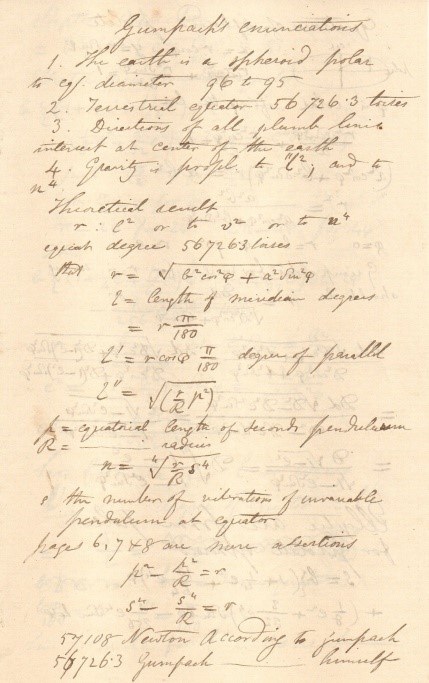 Gumpach's enunciations
1. The earth is a spheroid polar
to eq. diameter 96 to 95
2. Terrestrial equator 56726.3 toises
3. Directions of all plumb lines
intersect at center of the earth
4. Gravity is propl. to l''², and to
n⁴.
Theoretical result
r : l² or to v² or to n⁴
equat degree 56726.3 toises
that r = √b² cos²φ + a² sin²φ
l = length of meridian degrees
= r π/180
l' = r cosφ π/180 degree of parallel
l'' = √(r/R p²)
p = equatorial length of seconds pendulum
R = ———— radius
n = ⁴√r/R s⁴
s the number of vibrations of invariable
pendulum at equator
pages 6, 7 & 8 are mere assertions
p² – p²/R = r
s⁴ – s⁴/R = r
57108 Newton According to gumpach
56726.3 Gumpach ———— himself